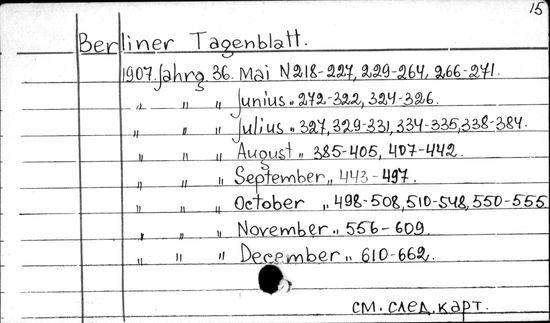 15
Berliner Tagenblatt.
1907. Jahrg. 36. Mai N 218-227, 229-264, 266-271.
„ „ „ Junius „ 272-322, 324-326.
„ „ „ Julius „ 327, 329-331, 334-335, 338-384.
„ „ „ August „ 385-405, 407-442.
„ „ „ September „ 443-497.
„ „ „ October „ 498-508, 510-548, 550-555
„ „ „ November „ 556-609.
„ „ „ December „ 610-662.
см. след. карт.